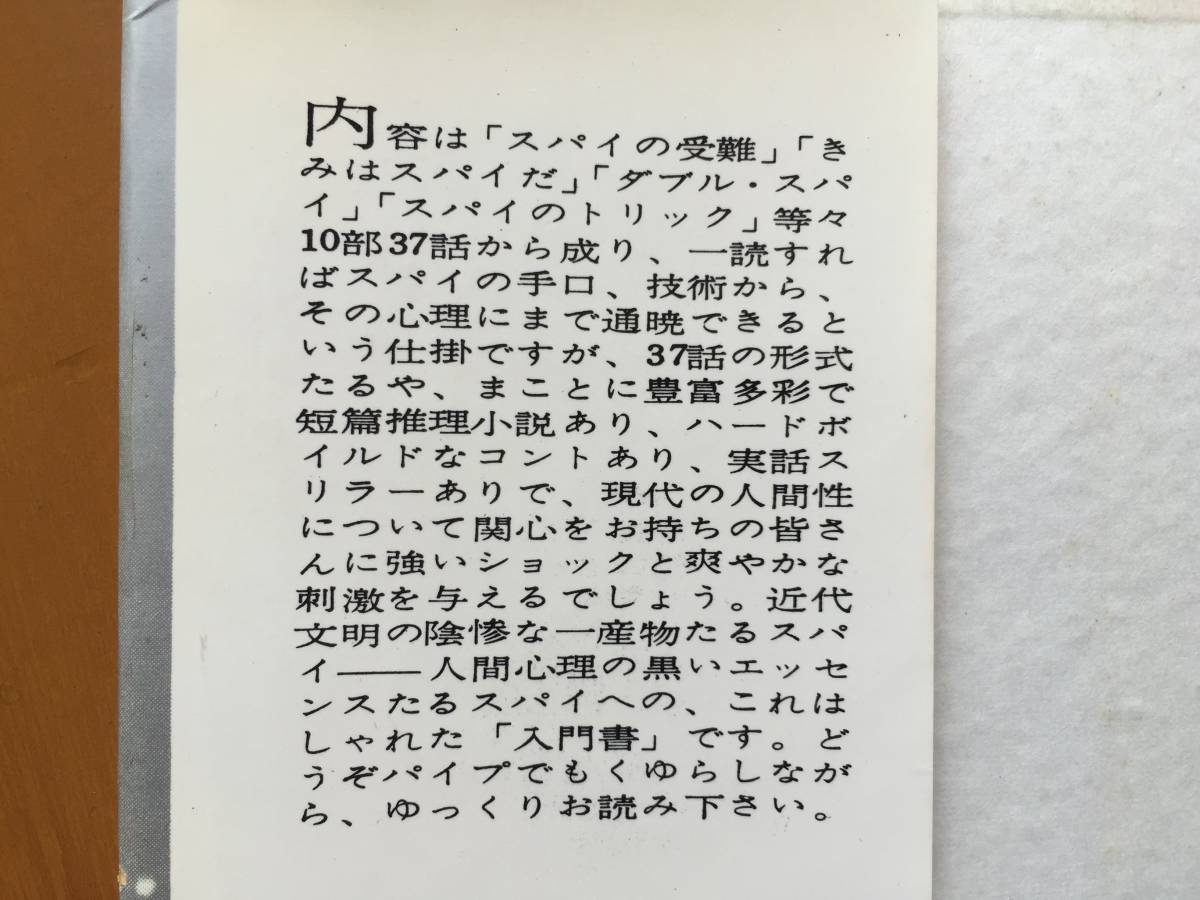 内容は「スパイの受難」「き
みはスパイだ」「ダブル・スパ
イ」「スパイのトリック」等々
10部37話から成り、一読すれ
ばスパイの手口、技術から、
その心理にまで通暁できると
いう仕掛ですが、37話の形式
たるや、まことに豊富多彩で
短篇推理小説あり、ハードボ
イルドなコントあり、実話ス
リラーありで、現代の人間性
について関心をお持ちの皆さ
んに強いショックと爽やかな
刺激を与えるでしょう。近代
文明の陰惨な一産物たるスパ
イ――人間心理の黒いエッセ
ンスたるスパイへの、これは
しゃれた「入門書」です。ど
うぞパイプでもくゆらしなが
ら、ゆっくりお読み下さい。